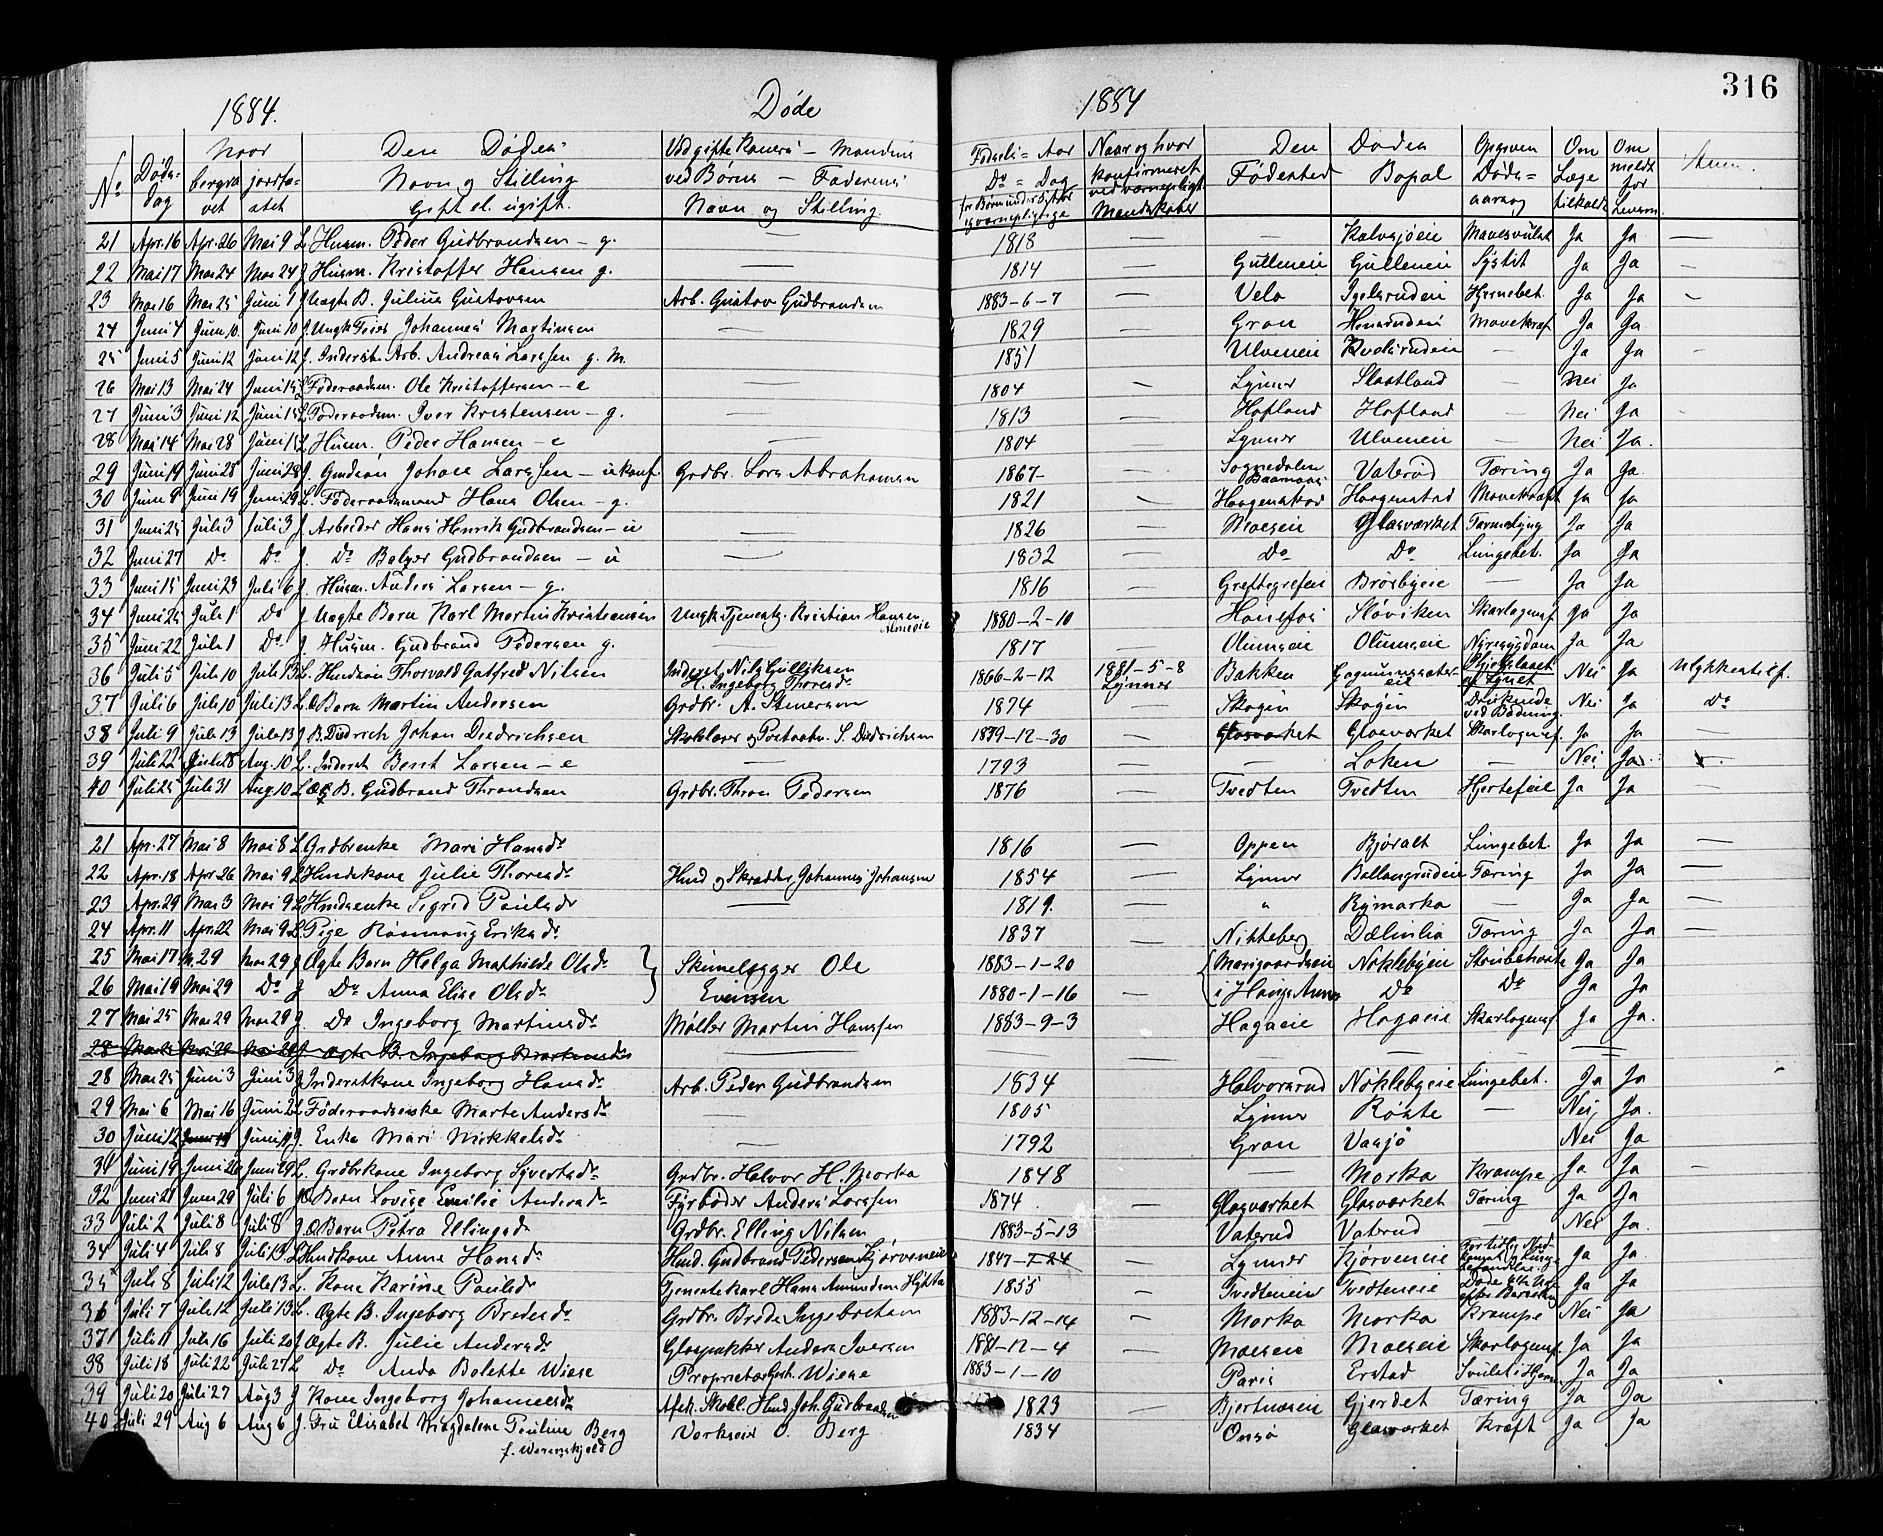 316
1884. Døde 1884
No Døds-dag Naar begravet jordfæstet Den Dødes Navn og Stilling Gift el. ugift. Ved gifte Koner: Mandens ved Børn - Faderens Navn og Stilling Fødsels-Aar Do = Dag Naar og hvor konfirmeret ved værnepligt. Mandskaber Den Dødes Fødested Bopæl Opgiven Døds=aarsag Om Læge tilkaldt Om meldt for Lensm. Anm.
21 Apr. 16 Apr. 26 Mai 9 L Husm. Peder Gudbrandsen - g. — 1818 — — Kalvsjøeie Mavesvulst Ja Ja —
22 Mai 17 Mai 24 Mai 24 J Husm. Kristoffer Hansen g. — 1814 — Gulleneie Gulleneie Ja Ja —
23 Mai 16 Mai 25 Juni 1 J Uægte B. Julius Gustavsen Arb. Gustav Gudbrandsen 1883-6-7 — Velo Hjernebet. Ja Ja —
24 Juni 4 Juni 10 Juni 10 J Johannes Martinsen — 1829 — Gran Mavekræf Ja Ja
25 Juni 5 Juni 12 Juni 12 J. Inderst. Arb. Andreas Larssen g. M. — 1851 — Ulveneie — Ja Ja —
26 Mai 13 Mai 24 Juni 15 L Føderaadsm. Ole Kristoffersen - e — 1804 — Lynner Slaatland — Nei Ja
27 Juni 3 Juni 12 Juni 15 L Føderaadsm. Iver Kristensen - g. — 1813 — Hofland Hofland — Nei Ja -
28 Mai 14 Mai 28 Juni 15 L Husm. Peder Hansen - e — 1804 — Lynner Ulveneie — Nei Ja.
29 Juni 19 Juni 28 Juni 28 J. Johan Larssen - ukonf. Grdbr. Lars Abrahamsen 1867- — Sognedalen Vaterud Tæring Ja Ja
30 Juni 9 Juni 19 Juni 29 L. Føderaadsmand Hans Olsen - g. 1821 — Haagenstad Haagenstad Mavekræft Ja Ja
31 Juni 25 Juli 3 Juli 3 J Arbeider Hans Henrik Gudbrandsen - u — 1826 — Moeseie Glasværket Ja Ja
32 Juni 27 Do Do J. Do Gudbrandsen - u — 1832 — Do Do Lungebet. Ja Ja
33 Juni 15 Juni 23 Juli 6 J. Husm. Anders Larsen - g. 1816 — Greftegrefeie Brørbyeie — Ja Ja
34 Juni 25 Juli 1 Do J Uægte Barn Karl Martin Kristiansen Ungk. Tjenestg. Kristian Hansen 1880-2-10 — Hønefos Sløviken Skarlagensf Ja Ja
35 Juni 22 Juli 1 Do J Husm. Gudbrand Pedersen g. — 1817 — Olumseie Olumseie Nyresygdom Ja Ja
36 Juli 5 Juli 10 Juli 13 L. Thorvald Gotfred Nilsen Inderst Nils Gulliksen H. Ingeborg Thorsdr 1866-2-12 1881-5-8 Lynner Bakken af Lynet Nei Ja Ulykkestilf.
37 Juli 6 Juli 10 Juli 13 L Æ Barn Martin Andersen Grdbr. A. Steuersen 1874 — Skogen Skogen Druknede ved Badning Nei Ja Do
38 Juli 9 Juli 13 Juli 13 J B. Didrich Johan Diedrichsen Skolelærer og Postaabn. S. Diedrichsen 1879-12-30 — Glasværket Glasværket Skarlagensf Ja Ja —
39 Juli 22 Juli 28 Aug. 10 L. Inderst Bent Larsen - e — 1793 — — Løken — Nei Ja. —
40 Juli 25 Juli 31 Aug. 10 L Æg B. Gudbrand Throndsen Grdbr. Thron Pedersen 1876 — Tvedten Tvedten Hjertefeil Ja Ja
21 Apr. 27 Mai 8 Mai 8 L Grdbrenke Mari Hansdr 1816 — Oppen Bjøralt Lungebet. Ja Ja —
22 Apr. 18 Apr 26 Mai 9 L Julie Thorsdr Husd. og Skrædder Johannes Johansen 1854 — Lynner Ballangrudeie Tæring Ja Ja —
23 Apr. 29 Mai 3 Mai 9 L Sigrid Paulsdr — 1819. — " Rymarka — Ja Ja —
24 Apr. 11 Apr. 22 Mai 9 L Pige Rønnaug Eriksdr 1837 — Nikkeberg Dælenlia Tæring Ja Ja —
25 Mai 17 M. 29 Mai 29 J Ægte Barn Helga Mathilde Olsdr Skinnelægger Ole 1883-1-20 — Mariegaardseie Nøklebyeie Strubehoste Ja Ja
26 Mai 19 Mai 29 Do J Do Anna Elise Olsdr Evensen 1880-1-16 — i Hougs Annex Do Do Ja Ja
27 Mai 25 Mai 29 Mai 29 J Do Ingeborg Martinsdr Møller Martin Hanssen 1883-9-3 — Hagaeie Hagaeie Skarlagensf Ja Ja.
28 Mai 25 Mai 29 Mai 29 J Ægte B. Ingeborg Martinsdr
28 Mai 25 Juni 3 Juni 3 J Inderstkone Ingeborg Hansdr Arb. Peder Gudbrandsen 1834 — Halvorsrud Nøklebyeie Lungebet. Ja Ja
29 Mai 6 Mai 16 Juni 2 L Føderaadsenke Marte Andersdr — 1805 — Lynner Røste — Nei Ja.
30 Juni 12 Juni 19 Juni 19 J. Enke Mari Mikkelsdr — 1792 — Gran Vasjø Nei Ja
31 Juni 19 Juni 26 Juni 29 L. Grdbrkone Ingeborg Syversdr Grdbr. Halvor H. Morka 1848 — — Morka Krampe Ja Ja —
32 Juni 21 Juni 29 Juli 6 Barn Lovise Emilie Andersdr Fyrbøder Anders Larssen 1874 — Glasværket Glasværket Tæring Ja Ja
33 Juli 2 Juli 8 Juli 8 J Æ Barn Petra Ellingsdr Grdbr. Elling Nilsen 1883-5-13 — Vaterud Vaterud — Nei Ja.
34 Juli 4 Juli 8 Juli 13 L Husdkone Anne Hansdr Husd. Gudbrand Pedersen Kjørveneie 1847-7-24 — Lynner Kjørveneie Ja Ja
35 Juli 8 Juli 12 Juli 13 L. Kone Karine Paulsdr Tjenestekarl Hans Amundsen Hytta 1855 — Tvedteneie Tvedteneie efter Barselseng Ja Ja
36 Juli 7 Juli 12 Juli 13 L. Ægte B. Ingeborg Bredesdr Grdbr. Brede Ingebretsen 1883-12-14 — Morka Morka Krampe Nei Ja
37 Juli 11 Juli 16 Juli 20 J Ægte B. Julie Andersdr Glaspakker Anders Iversen 1881-12-4 — Moeseie Moeseie Skarlagensf Ja Ja
38 Juli 18 Juli 22 Juli 27 L Do Anda Bolette Wiese Proprietær Wiese 1883-1-10 — Paris Erstad Svulst i Hjernen Ja Ja
39 Juli 20 Juli 27 Aug 3 J Kone Ingeborg Johannesdr Afsk. Skoll. Husd. Joh. Gudbrandsen 1823 — Bjertneseie Gjerdet Tæring Ja Ja
40 Juli 29 Aug 6 Aug 6 J. Fru Elisabet Magdalene Pauline Berg f. Werenskjold Berg 1834 — Onsø Glasværket Kræft Ja Ja